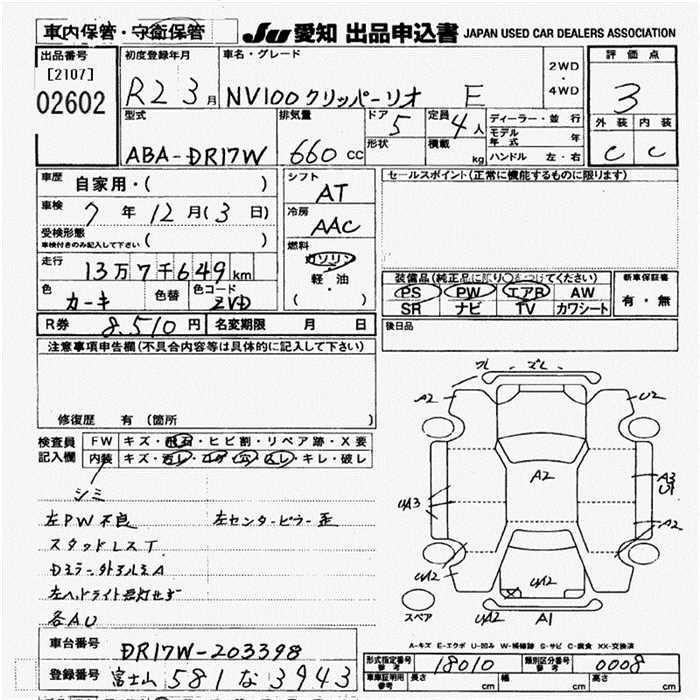 車内保管・守衛保管
JU 愛知 出品申込書 JAPAN USED CAR DEALERS ASSOCIATION
出品番号
[2107]
02602
初度登録年月
R2 3月
車名・グレード
NV100クリッパーリオ E
2WD
・
4WD
評価点
3
外装 内装
C C
型式
ABA-DR17W
排気量
660 cc
ドア 5
形状
定員 4人
積載 kg
ディーラー・並行
モデル年式 年
ハンドル 左・右
車歴 自家用・( )
車検 7年12月(3日)
受検形態
車検付きのみ記入して下さい ( )
走行 13万7千649km
色 カーキ
色替
色コード ZVD
シフト AT
冷房 AAC
燃料
ガソリン
軽・油
( )
セールスポイント(正常に機能するものに限ります)
装備品(純正品に限り○をつけてください)
PS PW エアB AW
SR ナビ TV カワシート
新車保証書
有・無
後日品
R券 8,510円
名変期限 月 日
注意事項申告欄(不具合内容等は具体的に記入して下さい)
修復歴 有 (箇所 )
検査員
記入欄
FW キズ・飛石・ヒビ割・リペア跡・X要
内装 キズ・汚レ・コゲ・穴・スレ・キレ・破レ
シミ
左PW不良 左センターピラー歪
スタッドレスT
Dミラー外ヌリミA
左ヘッドライト点灯せず
各AU
A2 U2
A2
A3
U1
UA3
A2
UA2 UA2
UA2 A1
スペア
A-キズ E-エクボ U-凹み W-補修跡 S-サビ C-腐食 XX-交換済
車台番号 DR17W-203398
登録番号 富士山 581 な 3943
形式指定番号
参考
18010
類別区分番号
参考
0008
車庫証明用
参考
長さ cm
幅 cm
高さ cm